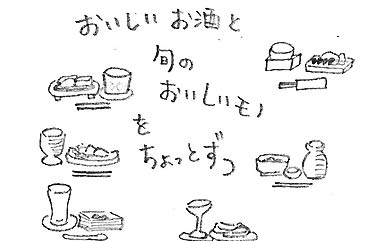 おいしいお酒と
旬の
おいしいモノ
を
ちょっとずつ